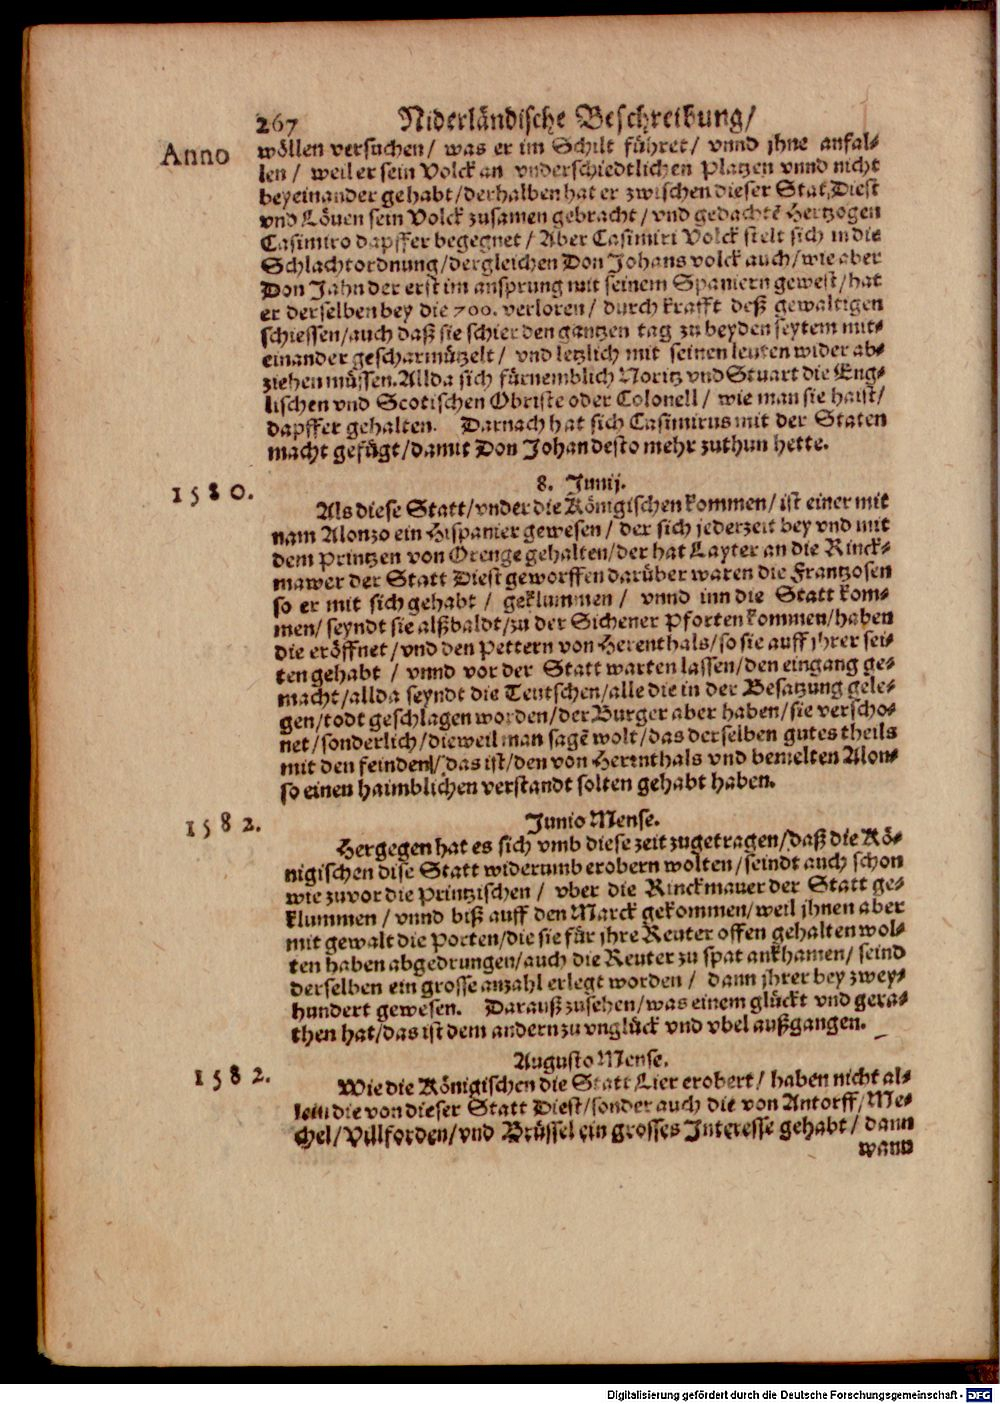 267 Niderländische Beschreibung/
Anno
wöllen versuchen/ was er im Schilt führet/ vnnd jhne anfal-
len/ weil er sein Volck an vnderschiedtlichen Platzen vnnd nicht
beyeinander gehabt/derhalben hat er zwischen dieser Stat Diest
vnd Löuen sein Volck zusamen gebracht/ vnd gedachtē Hertzogen
Casimiro dapffer begegnet/ Aber Casimiri Volck stelt sich in die
Schlachtordnung/dergleichen Don Johans volck auch/wie aber
Don Jahn der erst im ansprung mit seinem Spaniern gewest/hat
er derselben bey die 700. verloren/ durch krafft deß gewaltigen
schiessen/auch daß sie schier den gantzen tag zu beyden seytem mit-
einander gescharmützelt/ vnd letzlich mit seinen leuten wider ab-
ziehen müssen. Allda sich fürnemblich Noritz vnd Stuart die Eng-
lischen vnd Scotischen Obriste oder Colonell/ wie man sie haist/
dapffer gehalten. Darnach hat sich Casimirus mit der Staten
macht gefügt/damit Don Johan desto mehr zuthun hette.
8. Junij.
1580.
Als diese Statt/vnder die Königischen kommen/ist einer mit
nam Alonzo ein Hispanier gewesen/ der sich jederzeit bey vnd mit
dem Printzen von Orenge gehalten/der hat Layter an die Rinck-
mawer der Statt Diest geworffen darüber waren die Frantzosen
so er mit sich gehabt/ geklummen/ vnnd inn die Statt kom-
men/ seyndt sie alßbaldt/zu der Sichener Pforten kommen/haben
die eröffnet/vnd den Pettern von Herenthals/so sie auff jhrer sei-
ten gehabt/ vnnd vor der Statt warten lassen/den eingang ge-
macht/allda seyndt die Teutschen/alle die in der Besatzung gele-
gen/todt geschlagen worden/der Burger aber haben/sie verscho-
net/sonderlich/dieweil man sagē wolt/das derselben gutes theils
mit den feinden/das ist/den von Herinthals vnd bemelten Alon-
so einen haimblichen verstandt solten gehabt haben.
Junio Mense.
1582.
Hergegen hat es sich vmb diese zeit zugetragen/daß die Kö-
nigischen dise Statt widerumb erobern wolten/seindt auch schon
wie zuvor die Printzischen/ vber die Rinckmauer der Statt ge-
klummen/ vnnd biß auff den Marck gekommen/weil jhnen aber
mit gewalt die Porten/die sie für jhre Reuter offen gehalten wol-
ten haben abgedrungen/auch die Reuter zu spat ankhamen/seind
derselben ein grosse anzahl erlegt worden/ dann jhrer bey zwey-
hundert gewesen. Darauß zusehen/was einem glückt vnd gera-
then hat/das ist dem andern zu vnglück vnd vbel außgangen.
Augusto Mense.
1582.
Wie die Königischen die Statt Lier erobert/ haben nicht al-
lein die von dieser Statt Diest/sonder auch die von Antorff/Me-
chel/Villforden/vnd Brüssel ein grosses Interesse gehabt/ dann
wann
Digitalisierung gefördert durch die Deutsche Forschungsgemeinschaft - DFG